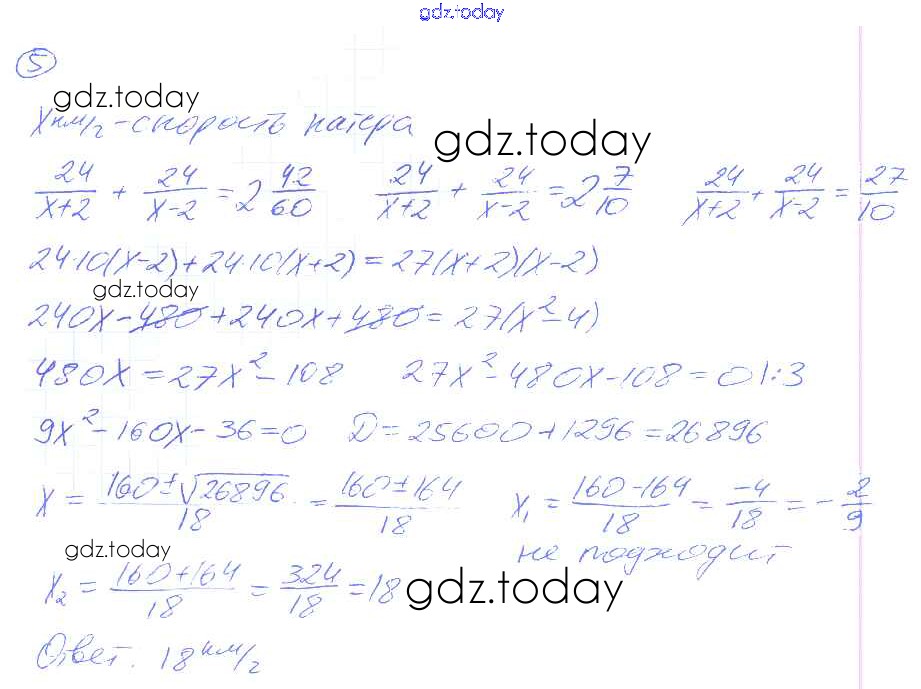 gdz.today
5
gdz.today
x км/г - скорость катера
gdz.today
24/(x+2) + 24/(x-2) = 2 42/60   24/(x+2) + 24/(x-2) = 2 7/10   24/(x+2) + 24/(x-2) = 27/10
24·10(x-2)+24·10(x+2)=27(x+2)(x-2)
gdz.today
240x-480+240x+480=27(x²-4)
480x=27x²-108   27x²-480x-108=0 |:3
9x²-160x-36=0   D=25600+1296=26896
x = (160±√26896)/18 = (160±164)/18   x₁ = (160-164)/18 = -4/18 = -2/9
gdz.today
не подходит
x₂ = (160+164)/18 = 324/18 = 18
gdz.today
Ответ: 18 км/г